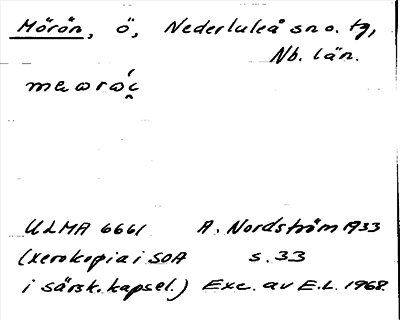 Mörön, ö, Nederluleå sn o. tg,
Nb. län.
ULMA 6661 A. Nordström 1933
(xerokopia i SOA s. 33
i särsk. kapsel.) Exc. av E.L. 1968.